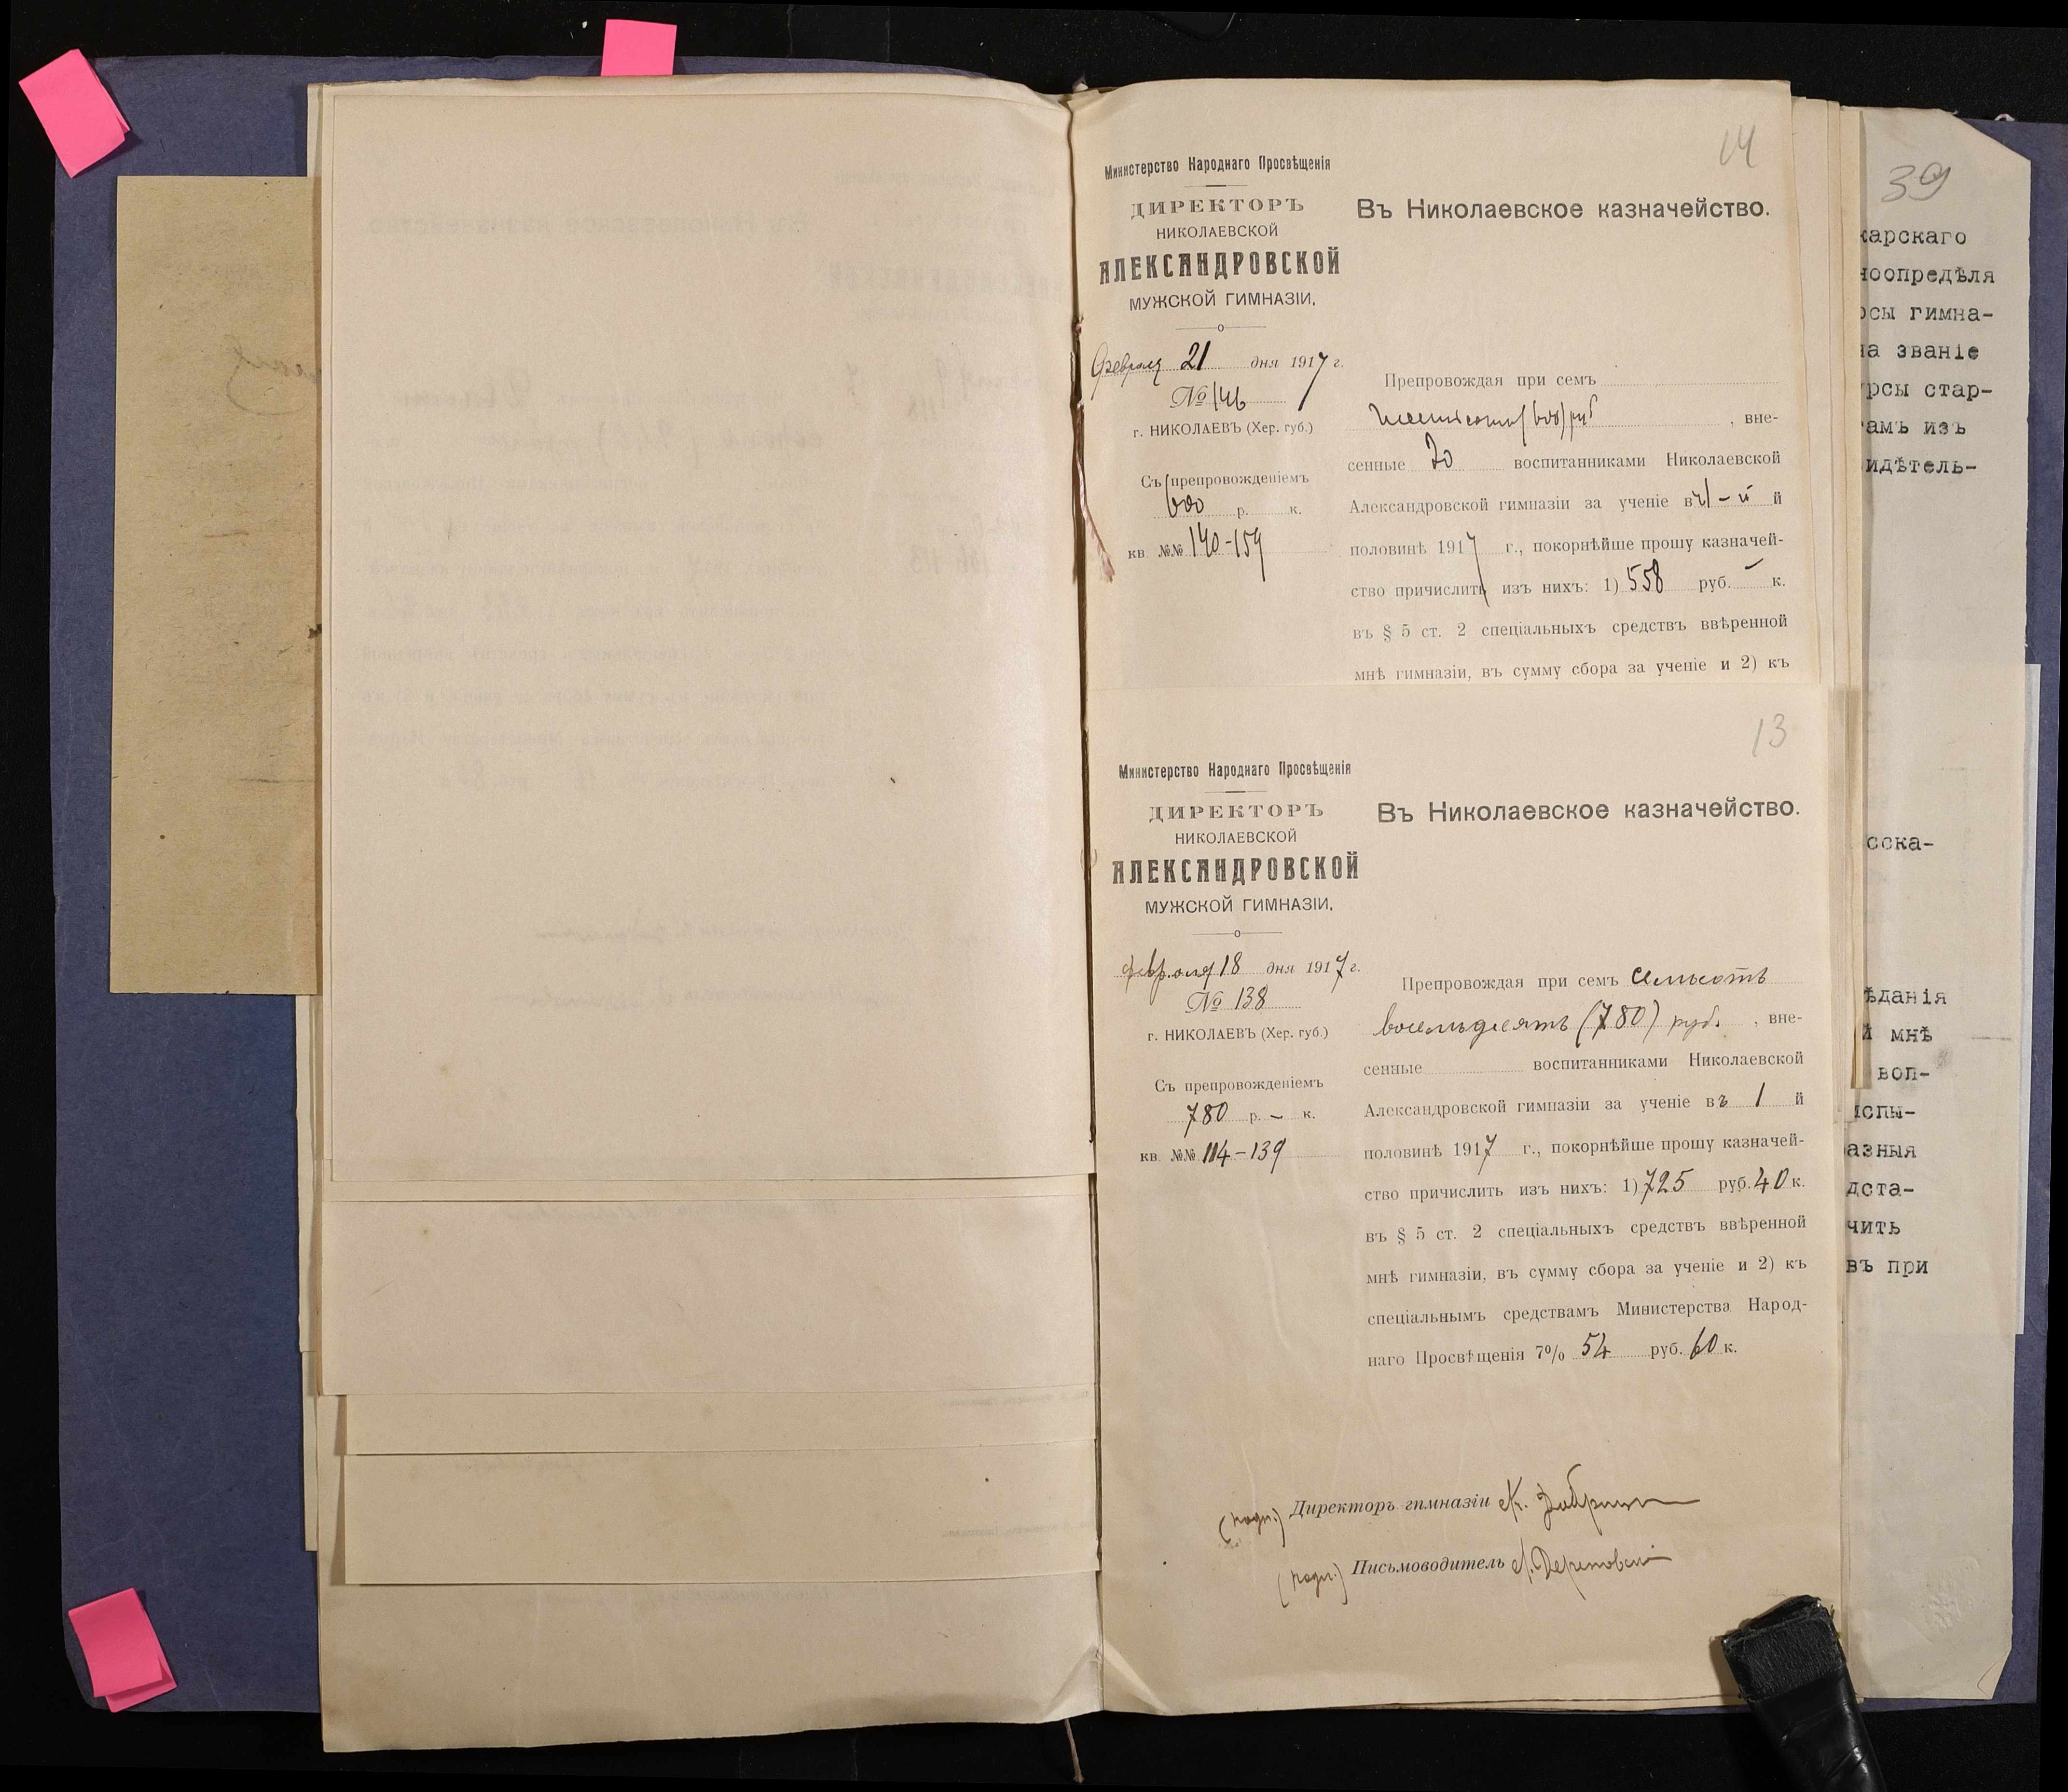 14
Министерство Народнаго Просвѣщенія
ДИРЕКТОРЪ
НИКОЛАЕВСКОЙ
АЛЕКСАНДРОВСКОЙ
МУЖСКОЙ ГИМНАЗІИ.
Февраля 21 дня 1917 г.
№ 146
г. НИКОЛАЕВЪ (Хер. губ.)
Съ препровожденіемъ
600 р. к.
кв. №№ 140-159
Въ Николаевское казначейство.
Препровождая при семъ
шестьсотъ (600) руб , вне-
сенные 20 воспитанниками Николаевской
Александровской гимназіи за ученіе въ 1-й й
половинѣ 1917 г., покорнѣйше прошу казначей-
ство причислить изъ нихъ: 1) 558 руб. — к.
въ § 5 ст. 2 спеціальныхъ средствъ ввѣренной
мнѣ гимназіи, въ сумму сбора за ученіе и 2) къ
13
Министерство Народнаго Просвѣщенія
ДИРЕКТОРЪ
НИКОЛАЕВСКОЙ
АЛЕКСАНДРОВСКОЙ
МУЖСКОЙ ГИМНАЗІИ.
февраля 18 дня 1917 г.
№ 138
г. НИКОЛАЕВЪ (Хер. губ.)
Съ препровожденіемъ
780 р. — к.
кв. №№ 114-139
Въ Николаевское казначейство.
Препровождая при семъ семьсотъ
восемьдесятъ (780) руб. , вне-
сенные воспитанниками Николаевской
Александровской гимназіи за ученіе въ 1 й
половинѣ 1917 г., покорнѣйше прошу казначей-
ство причислить изъ нихъ: 1) 725 руб. 40 к.
въ § 5 ст. 2 спеціальныхъ средствъ ввѣренной
мнѣ гимназіи, въ сумму сбора за ученіе и 2) къ
спеціальнымъ средствамъ Министерства Народ-
наго Просвѣщенія 7% 54 руб. 60 к.
(подп.) Директоръ гимназіи
(подп.) Письмоводитель
39
карскаго
ноопредѣля
рсы гимна-
на званіе
рсы стар-
амъ изъ
идѣтель-
сска-
ѣданія
й мнѣ
воп-
испы-
азныя
дста-
чить
въ при